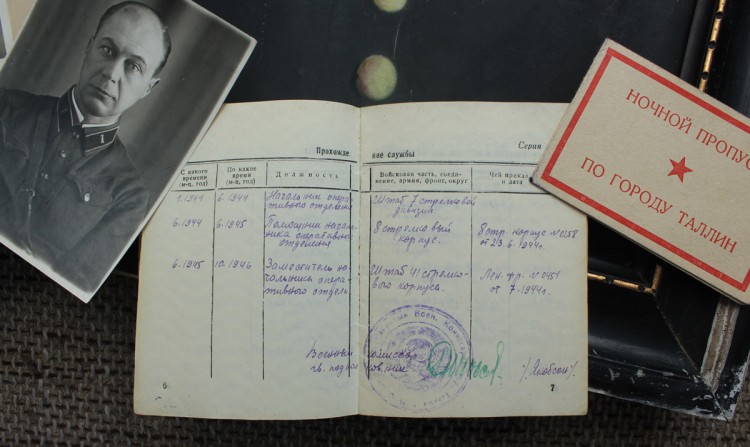 Прохожде ние службы
Серия
С какого времени (м-ц, год)
По какое время (м-ц, год)
Должность
Войсковая часть, соединение, армия, фронт, округ
Чей приказ и дата
1.1944 6.1944 Начальник оперативного отделения Штаб 7 стрелковой дивизии.
6.1944 6.1945 Помощник начальника оперативн отделения 8 стрелковый корпус. 8 стр. корпус № 0158 от 23.6.1944г.
6.1945 10.1946 Заместитель начальника оперативного отдела Штаб 41 стрелкового корпуса. Лен. фр. № 0451 от 7.1944г.
Военный комиссар
гв. подполковник /Якобсон/.
6
7
НОЧНОЙ ПРОПУС
ПО ГОРОДУ ТАЛЛИН